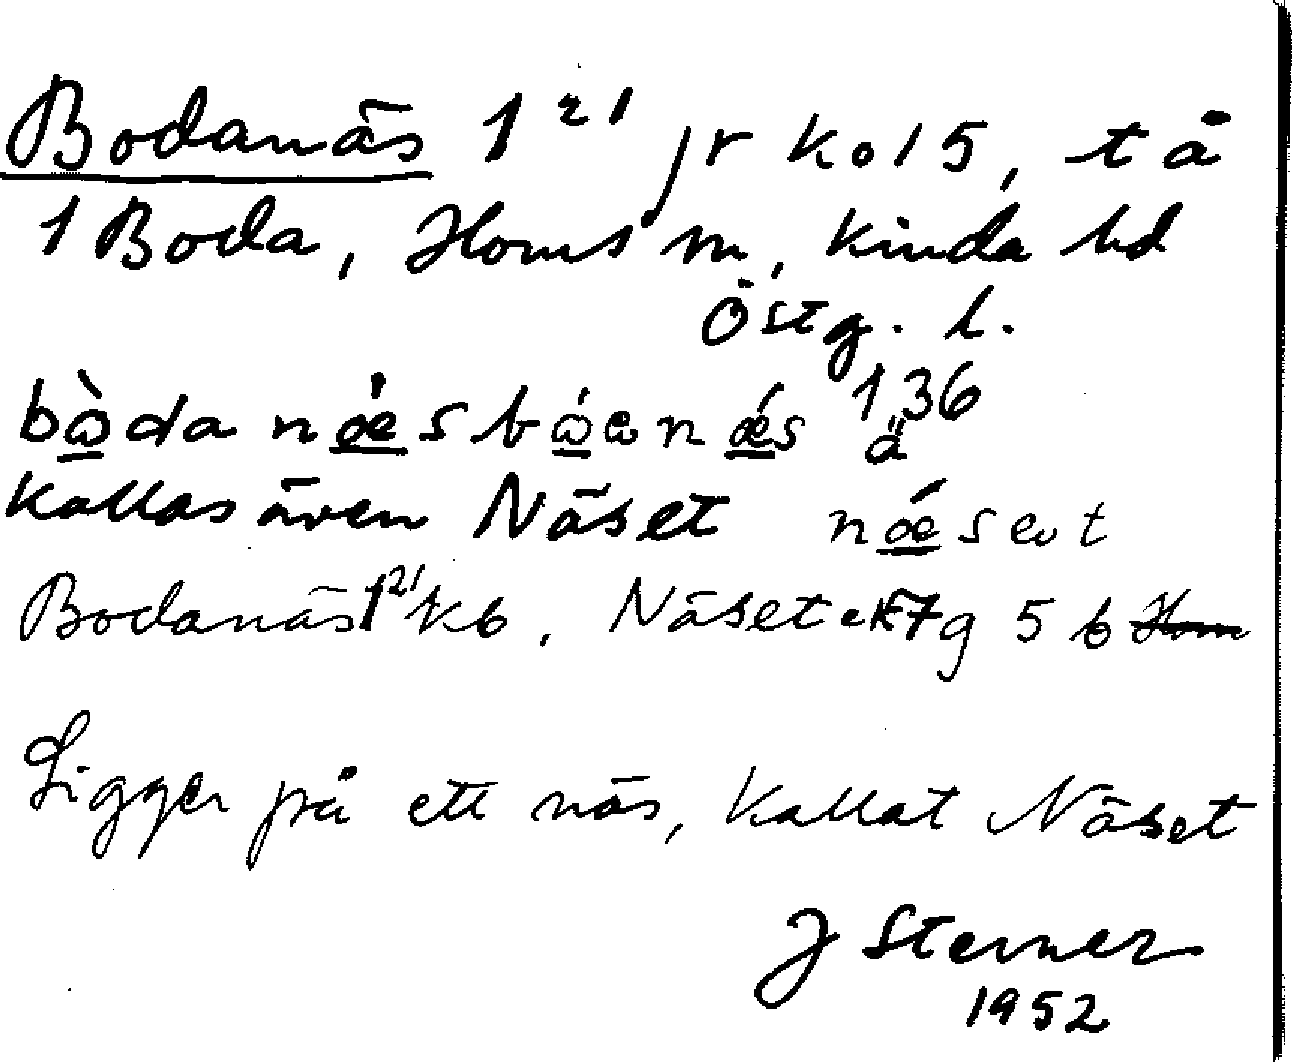 Bodanäs 1 21 jr ko15, tå
1 Boda, Horns sn, Kinda hd
Östg. l.
bò̲da nǽ̲s bó̲a nǽ̲s 136 ä
Kallas även Näset nǽ̲set
Bodanäs 1 21 kb, Näset ek 7g 5 b Horn
Ligger på ett näs, kallat Näset
J Sterner
1952